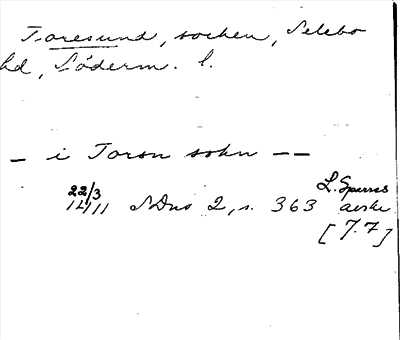 Toresund, socken, Selebo
hd, Söderm. l.
— i Toron sokn — —
22/3 1411 SDns 2, s. 363 L. Sparres
avskr
[7.7]